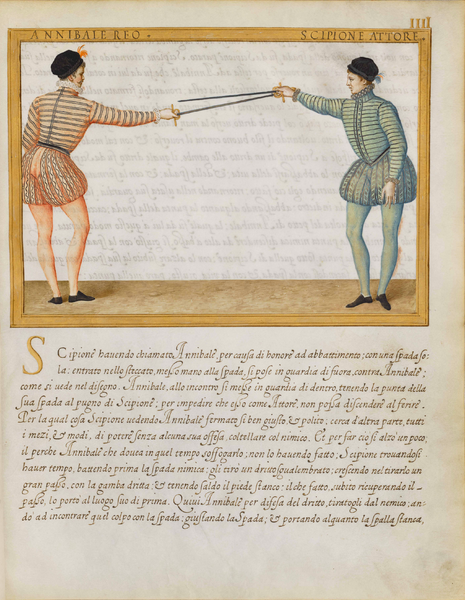 IIII
ANNIBALE REO.
SCIPIONE ATTORE.
Scipione havendo chiamato Annibale, per causa di honore ad abbattimento; con una spada so-
la: entrato nello steccato, messo mano alla spada, si pose in guardia di fuora, contra Annibale;
come si vede nel disegno. Annibale, allo incontro si messe in guardia di dentro, tenendo la punta della
sua spada al pugno di Scipione; per impedir che esso come Attore, non possa discendere al ferire.
Per la qual cosa Scipione vedendo Annibale fermato si ben giusto, & polito; cerca d'altra parte, tutti
i mezi, & modi, di potere senza alcuna sua offesa, coltellare col nimico. Et per cio si alzò un poco;
il perche Annibale che doveva in quel tempo soffogarlo; non lo havendo fatto; Scipione trovandosi
haver tempo, battendo prima la spada nimica; gli tirò un dritto squalembrato; crescendo nel tirarlo un
gran passo, con la gamba dritta; & tenendo saldo il piede stanco; il che fatto, subito ricuperando il
passo, lo portò al luogo suo di prima. Quivi Annibale per difesa del dritto, tiratogli dal nemico; an-
dò ad incontrare quel colpo con la spada; giustando la Spada; & portando alquanto la spalla stanca,